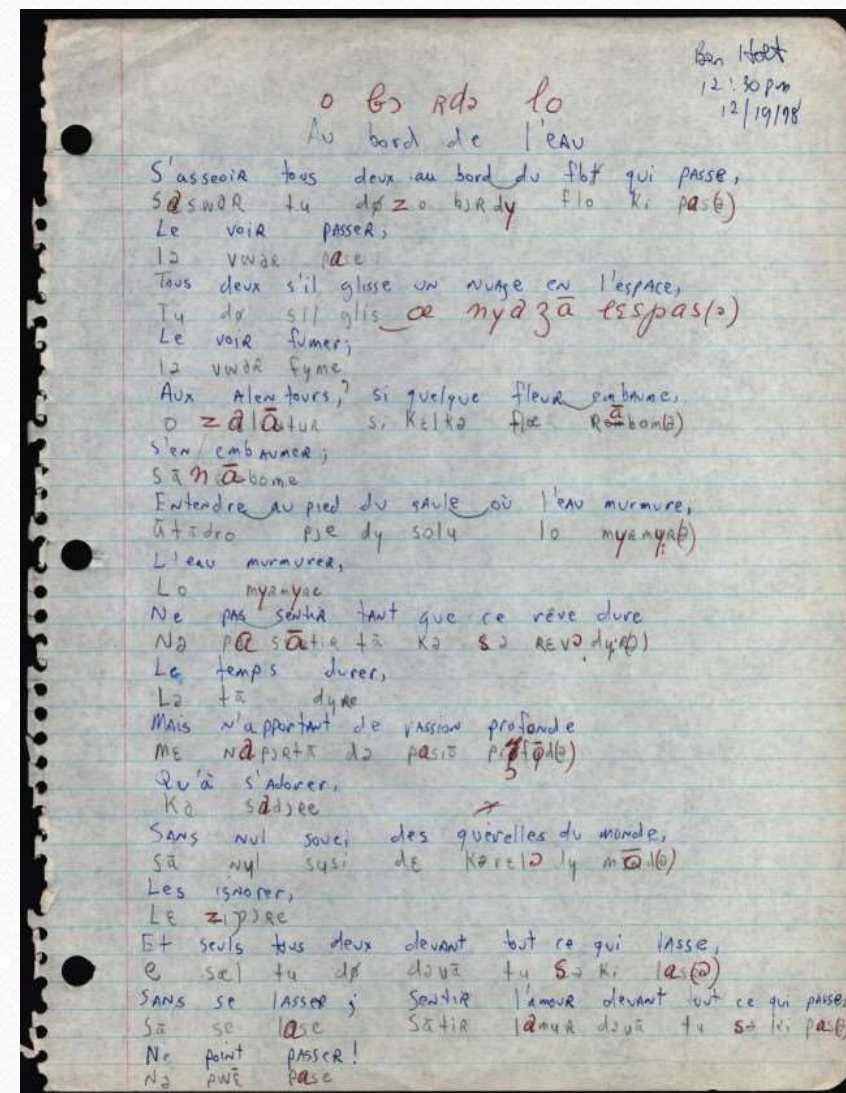 Ben Holt
12:30pm
12/19/98
o bɔ Rdə lo
Au bord de l'eau
S'asseoir tous deux au bord du flot qui passe,
saswaR tu døzo bɔRdy flo ki pas(ə)
Le voir passer,
lə vwaR pase
Tous deux s'il glisse un nuage en l'espace,
Tu dø sil glis œ nyaʒā lɛspas(ə)
Le voir fumer;
lə vwaR fyme
Aux Alentours, si quelque fleur embaume,
o zalātuR si kɛlkə flœ Rābom(ə)
S'en embaumer;
sā nābome
Entendre au pied du saule où l'eau murmure,
ātādro pje dy solu lo myRmyR(ə)
L'eau murmurer,
Lo myRmyRe
Ne pas sentir tant que ce rêve dure
Nə pa sātiR tā kə sə REvə dyR(ə)
Le temps durer,
Lə tā dyRe
Mais n'apportant de passion profonde
Mɛ napɔRtā də pasiō prɔfōd(ə)
Qu'à s'Adorer,
Ka sadɔRe
Sans nul souci des querelles du monde,
sā nyl susi dɛ kərelə dy mōd(ə)
Les ignorer,
Lɛ ziɲɔRe
Et seuls tous deux devant tout ce qui lasse,
e sœl tu dø dəvā tu sə ki las(ə)
Sans se lasser; Sentir l'amour devant tout ce qui passe,
Sā se lase SātiR lamuR dəvā tu sə ki pas(ə)
Ne point passer!
Nə pwɛ̄ pase